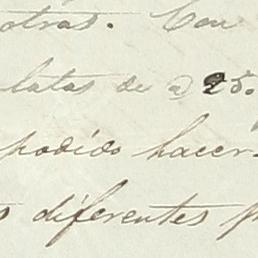 otras. Con
latas de a 25.
podido hacer
s diferentes p